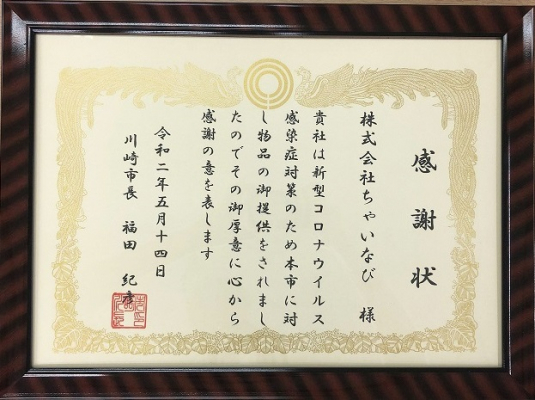 感謝状
株式会社ちゃいなび 様
貴社は新型コロナウイルス
感染症対策のため本市に対
し物品の御提供をされまし
たのでその御厚意に心から
感謝の意を表します
令和二年五月十四日
川崎市長 福田 紀彦